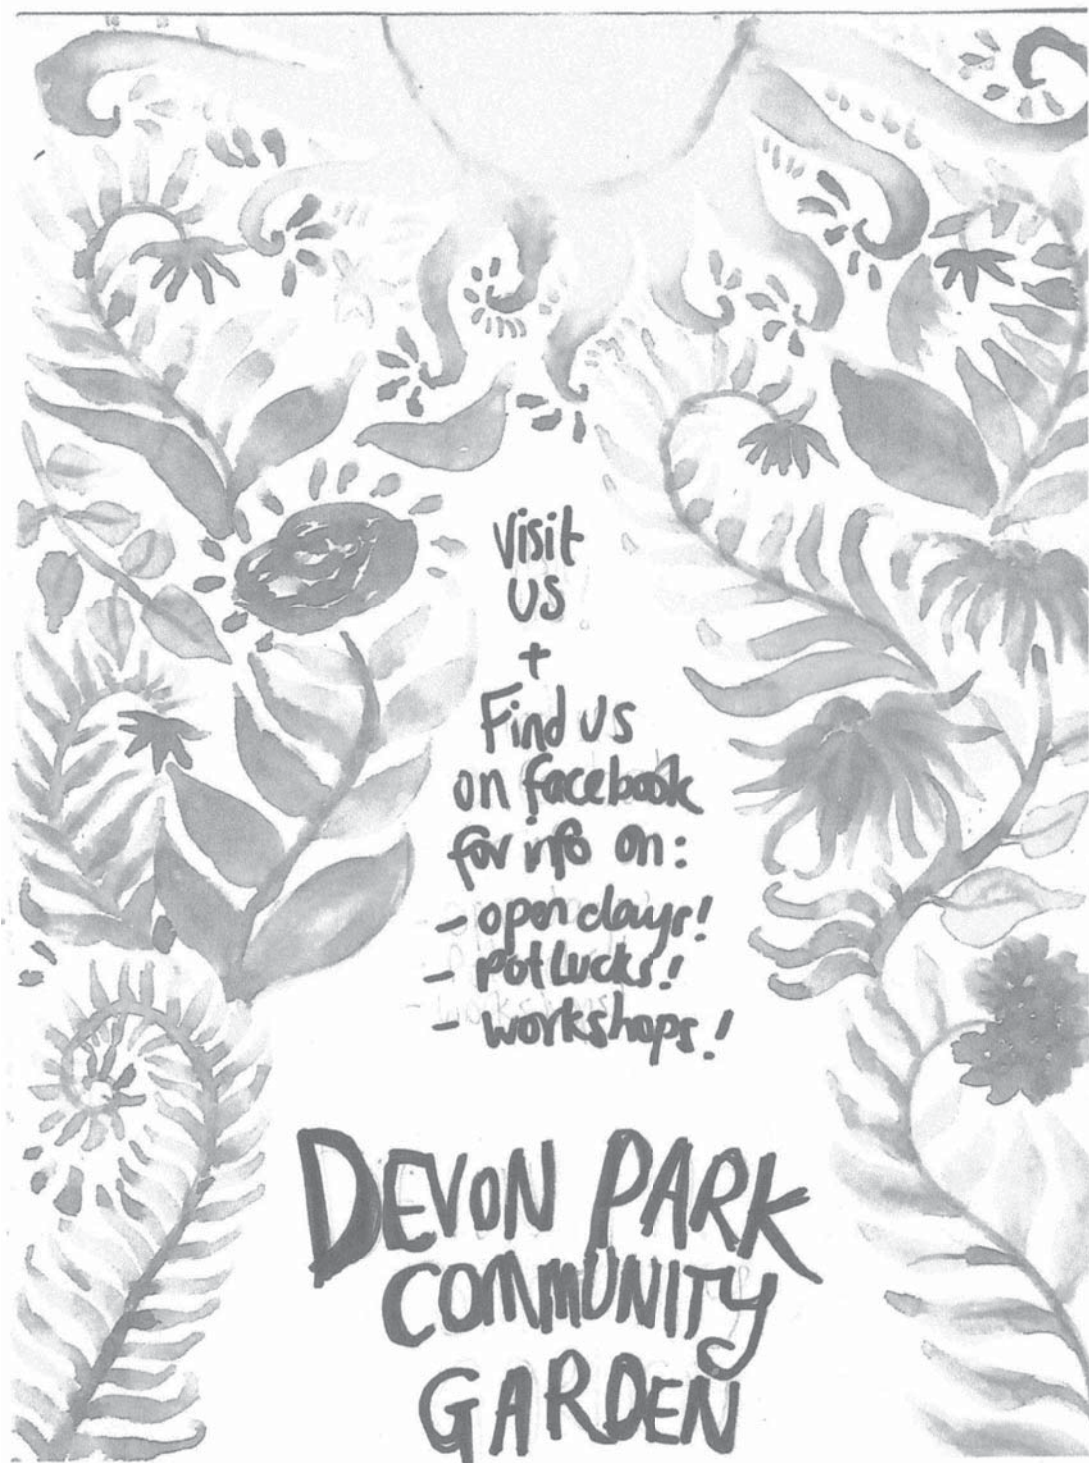 Visit
us
+
Find us
on facebook
for info on:
- open days!
- pot lucks!
- workshops!
DEVON PARK
COMMUNITY
GARDEN